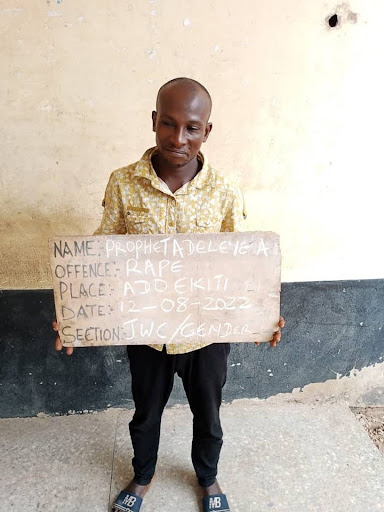 NAME:- PROPHET ADELEYE A
OFFENCE:- RAPE
PLACE:- ADO EKITI
DATE:- 12-08-2022
SECTION:- JWC/GENDER
MB MB